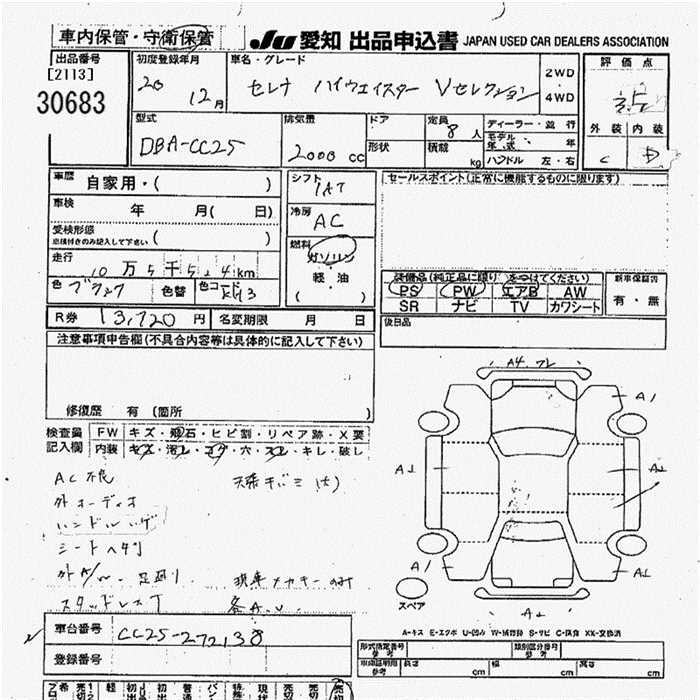 車内保管・守衛保管
JU 愛知 出品申込書 JAPAN USED CAR DEALERS ASSOCIATION
出品番号
[2113]
30683
初度登録年月
20 12月
車名・グレード
セレナ ハイウェイスター Vセレクション
2WD
・
4WD
評価点
3.5
外装 内装
C D
型式
DBA-CC25
排気量
2000 cc
ドア
形状
定員
8 人
積載
kg
ディーラー・並行
モデル年式 年
ハンドル 左・右
車歴
自家用・( )
車検
年 月( 日)
受検形態
車検付きのみ記入して下さい ( )
走行
10万5千524km
色 ブラック 色替 色コ KH3
シフト
IAT
冷房
AC
燃料
ガソリン
軽・油
( )
セールスポイント(正常に機能するものに限ります)
装備品(純正品に限り○をつけてください)
PS PW エアB AW
SR ナビ TV カワシート
新車保証書
有・無
R券 13,720円 名変期限 月 日
後日品
注意事項申告欄(不具合内容等は具体的に記入して下さい)
修復歴 有 (箇所 )
検査員
記入欄
FW キズ・飛石・ヒビ割・リペア跡・X要
内装 キズ・汚レ・コゲ・穴・スレ・キレ・破し
AC不良
外オーディオ
ハンドルハゲ
シートヘタリ
外A/W. 足廻り
スタッドレスT
現車メカキーのみ
各A.U
A4 フレ
A1
A1
A2
A1
A2
スペア
A-キズ E-エクボ U-凹み W-補修跡 S-サビ C-腐食 XX-交換済
車台番号
CC25-272138
登録番号
形式指定番号
参考
類別区分番号
参考
車庫証明用
参考
長さ cm
幅 cm
高さ cm